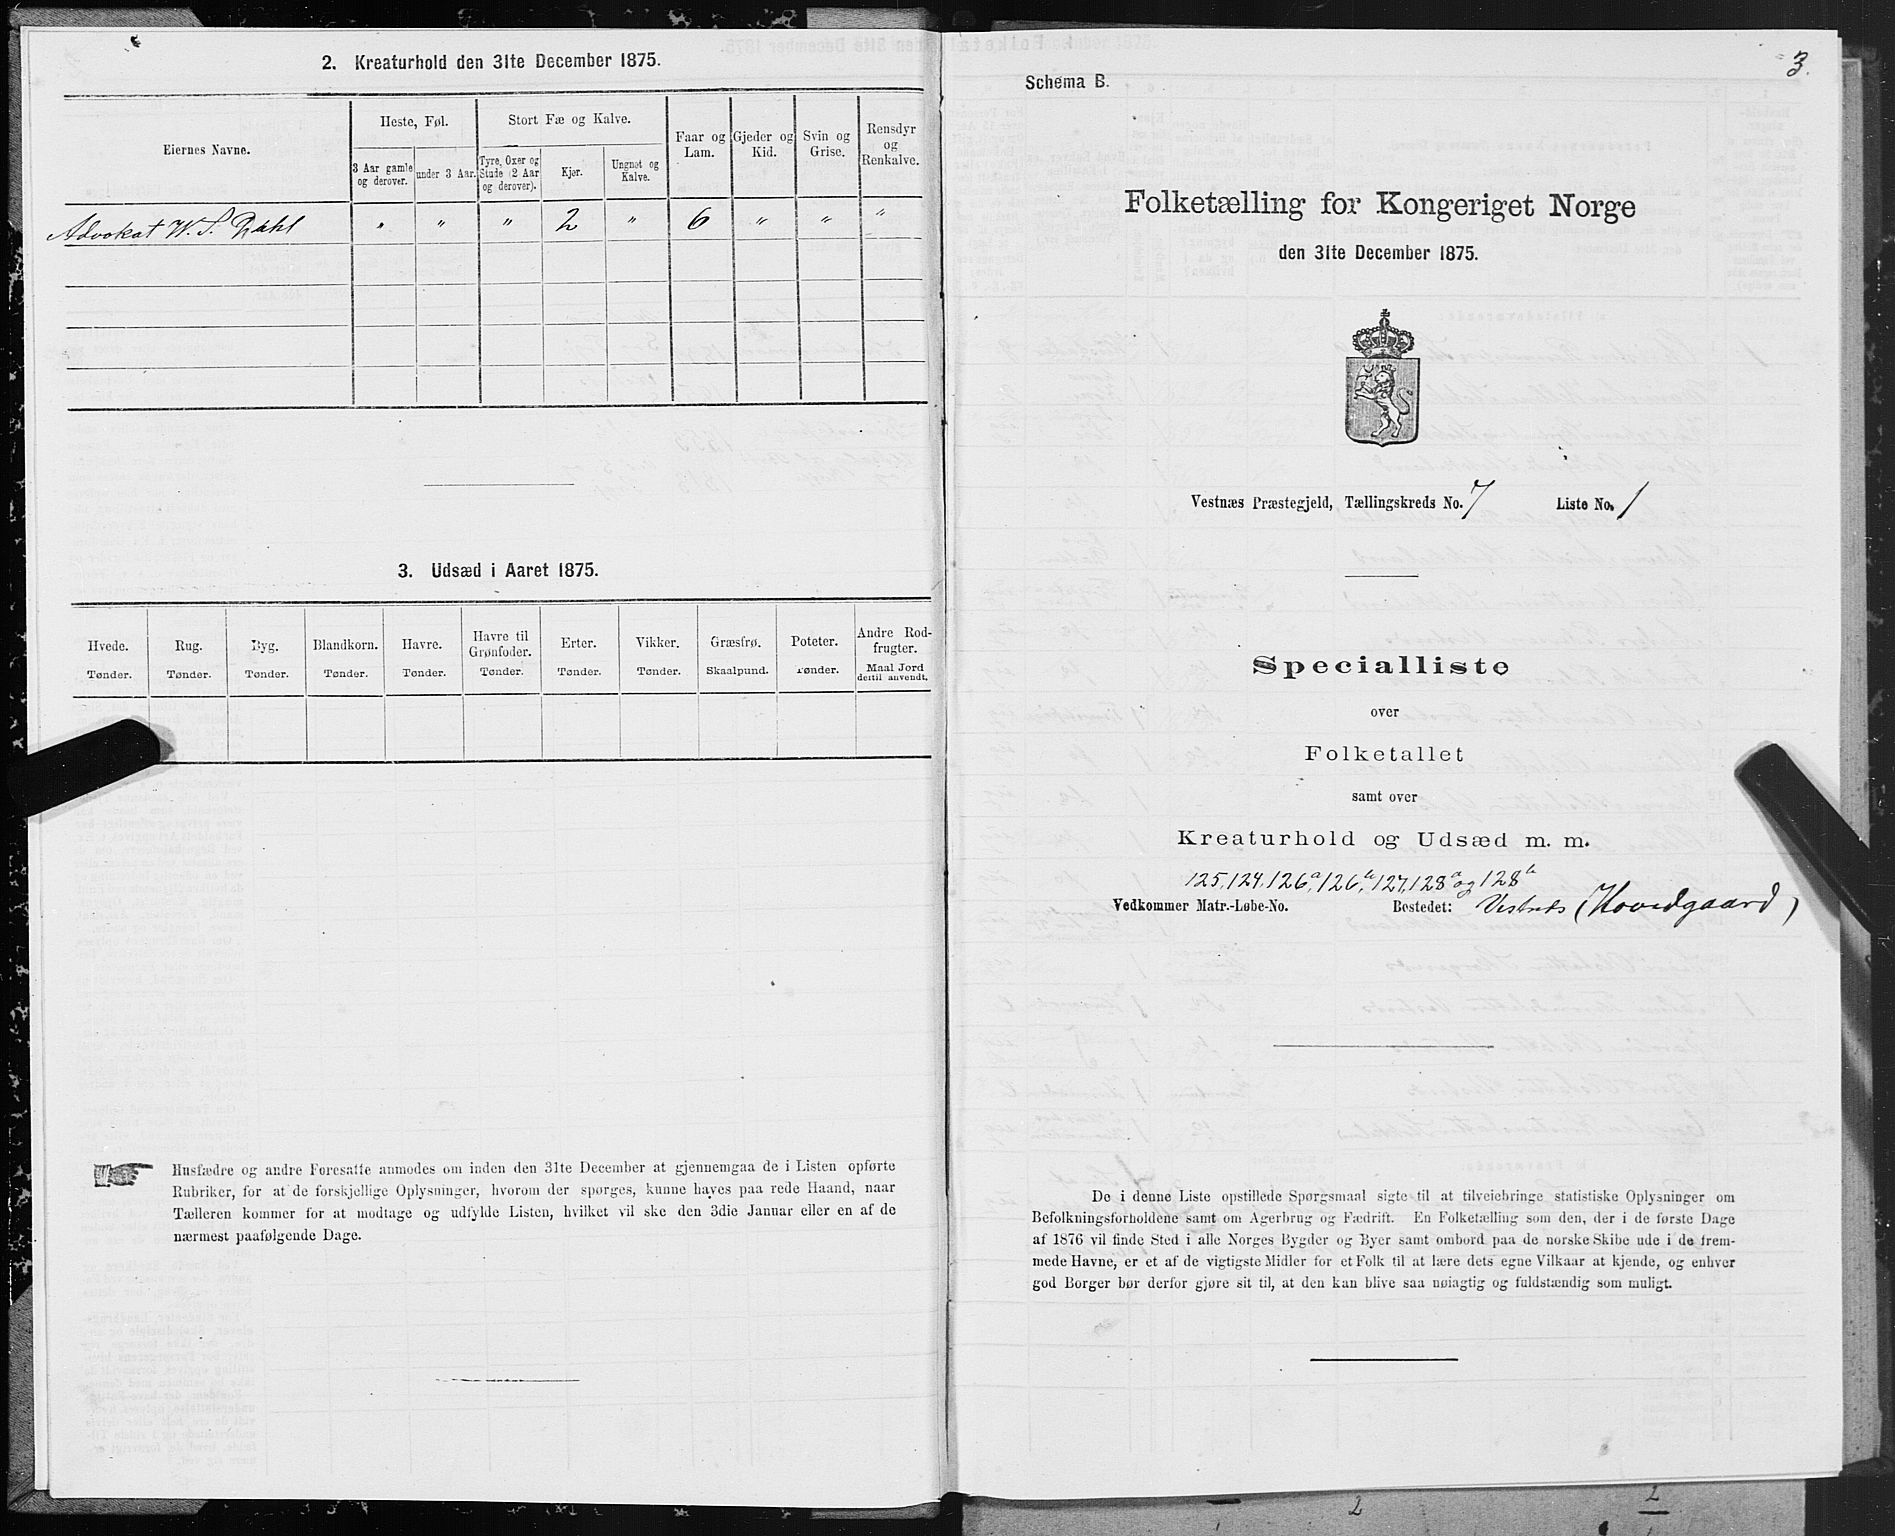 2. Kreaturhold den 31te December 1875.
Eiernes Navne.
Heste, Føl.
Stort Fæ og Kalve.
Faar og Lam.
Gjeder og Kid.
Svin og Grise.
Rensdyr og Renkalve.
3 Aar gamle og derover.
under 3 Aar.
Tyre, Oxer og Stude (2 Aar og derover).
Kjør.
Ungnøt og Kalve.
Advokat W. S. Dahl " " " 2 " 6 " " "
3. Udsæd i Aaret 1875.
Hvede. Rug. Byg. Blandkorn. Havre. Havre til Grønfoder. Erter. Vikker. Græsfrø. Poteter. Andre Rodfrugter.
Tønder. Tønder. Tønder. Tønder. Tønder. Tønder. Tønder. Tønder. Skaalpund. Tønder. Maal Jord dertil anvendt.
Husfædre og andre Foresatte anmodes om inden den 31te December at gjennemgaa de i Listen opførte
Rubriker, for at de forskjellige Oplysninger, hvorom der spørges, kunne haves paa rede Haand, naar
Tælleren kommer for at modtage og udfylde Listen, hvilket vil ske den 3die Januar eller en af de
nærmest paafølgende Dage.
3.
Schema B.
Folketælling for Kongeriget Norge
den 31te December 1875.
Vestnæs Præstegjeld, Tællingskreds No. 7 Liste No. 1
Specialliste
over
Folketallet
samt over
Kreaturhold og Udsæd m. m.
125, 124, 126a, 126b, 127, 128a og 128b
Vedkommer Matr.-Løbe-No. Bostedet: Vestnæs (Hovedgaard)
De i denne Liste opstillede Spørgsmaal sigte til at tilveiebringe statistiske Oplysninger om
Befolkningsforholdene samt om Agerbrug og Fædrift. En Folketælling som den, der i de første Dage
af 1876 vil finde Sted i alle Norges Bygder og Byer samt ombord paa de norske Skibe ude i de frem-
mede Havne, er et af de vigtigste Midler for et Folk til at lære dets egne Vilkaar at kjende, og enhver
god Borger bør derfor gjøre sit til, at den kan blive saa nøiagtig og fuldstændig som muligt.